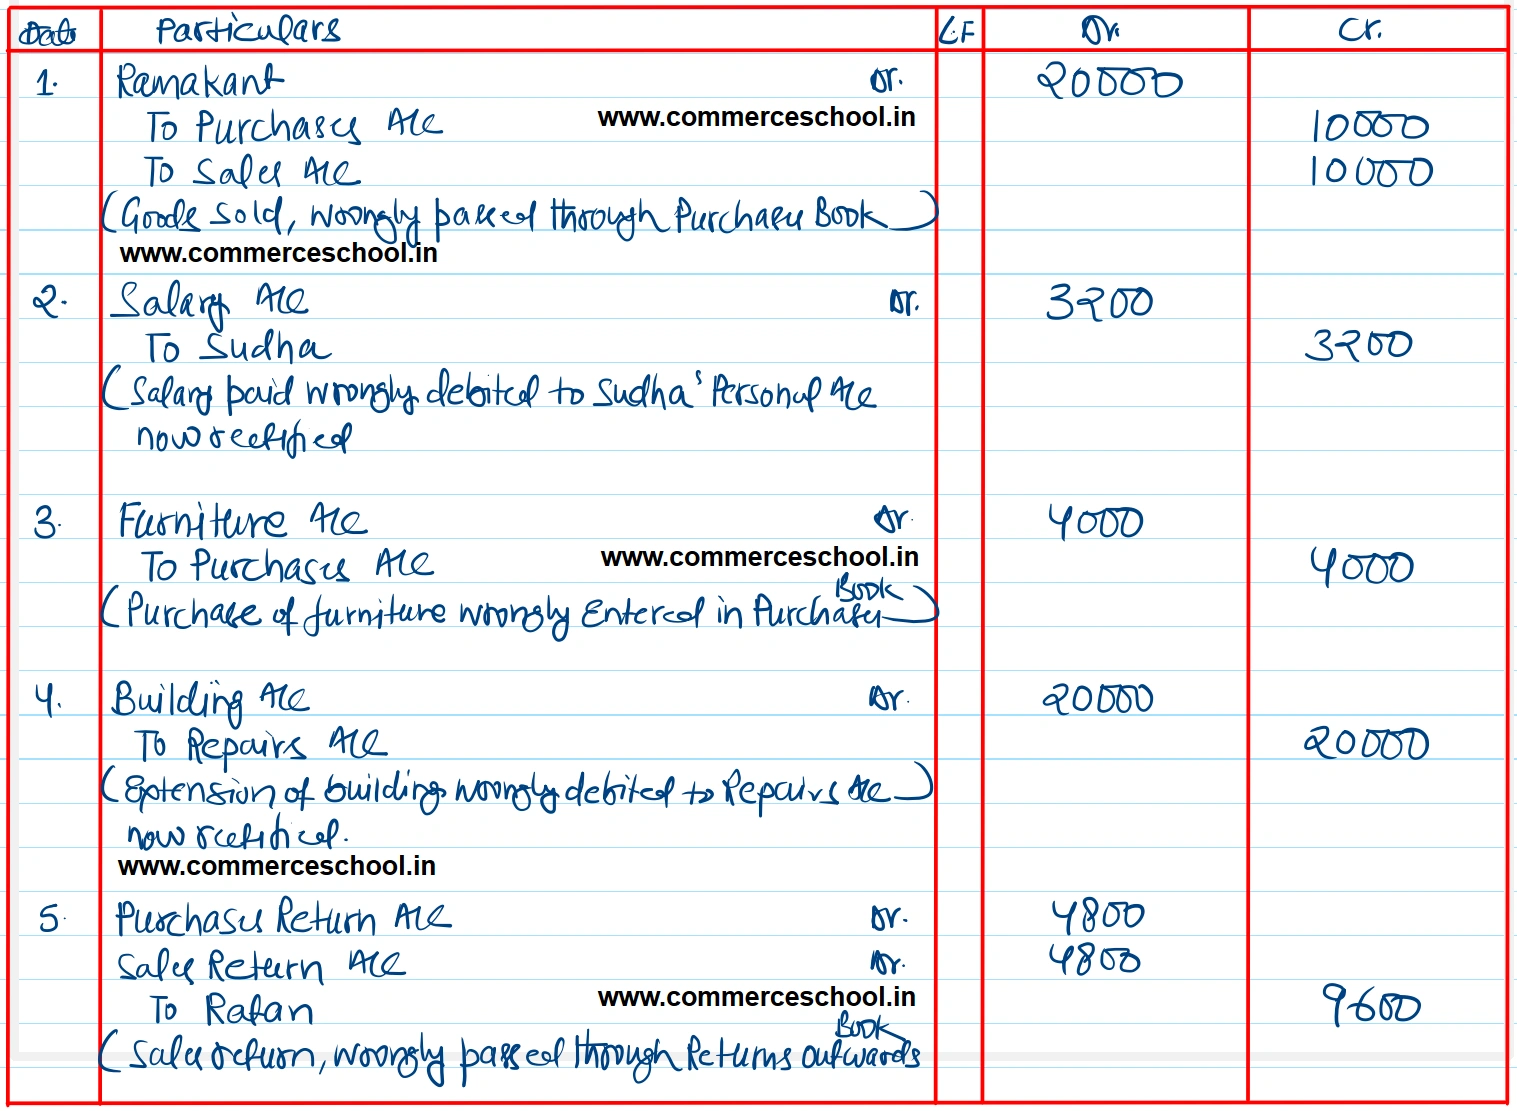 Date Particulars L.F Dr. Cr.
1. Ramakant Dr. 20000
To Purchases A/c www.commerceschool.in 10000
To Sales A/c 10000
(Goods sold, wrongly passed through Purchases Book)
www.commerceschool.in
2. Salary A/c Dr. 3200
To Sudha 3200
(Salary paid wrongly debited to Sudha's Personal A/c
now rectified
3. Furniture A/c Dr. 4000
To Purchases A/c www.commerceschool.in 4000
(Purchase of furniture wrongly Entered in Purchases Book)
4. Building A/c Dr. 20000
To Repairs A/c 20000
(Extension of building wrongly debited to Repairs A/c)
now rectified.
www.commerceschool.in
5. Purchases Return A/c Dr. 4800
Sales Return A/c Dr. 4800
To Ratan www.commerceschool.in 9600
(Sales return, wrongly passed through Returns outwards Book